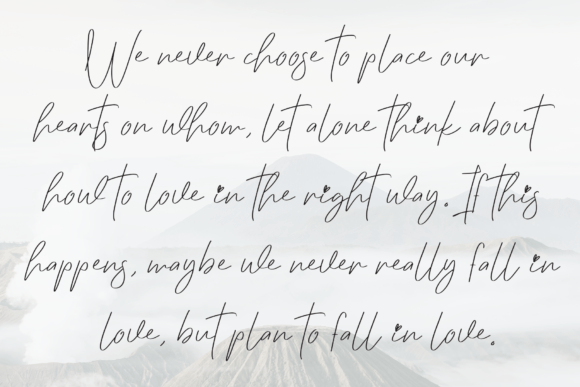 We never choose to place our
hearts on whom, let alone think about
how to love in the right way. If this
happens, maybe we never really fall in
love, but plan to fall in love.